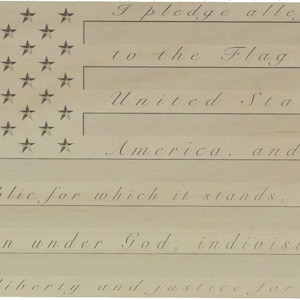 I pledge alle
to the Flag
United Sta
America, and
blic for which it stands,
n under God, indivisi
liberty and justice for